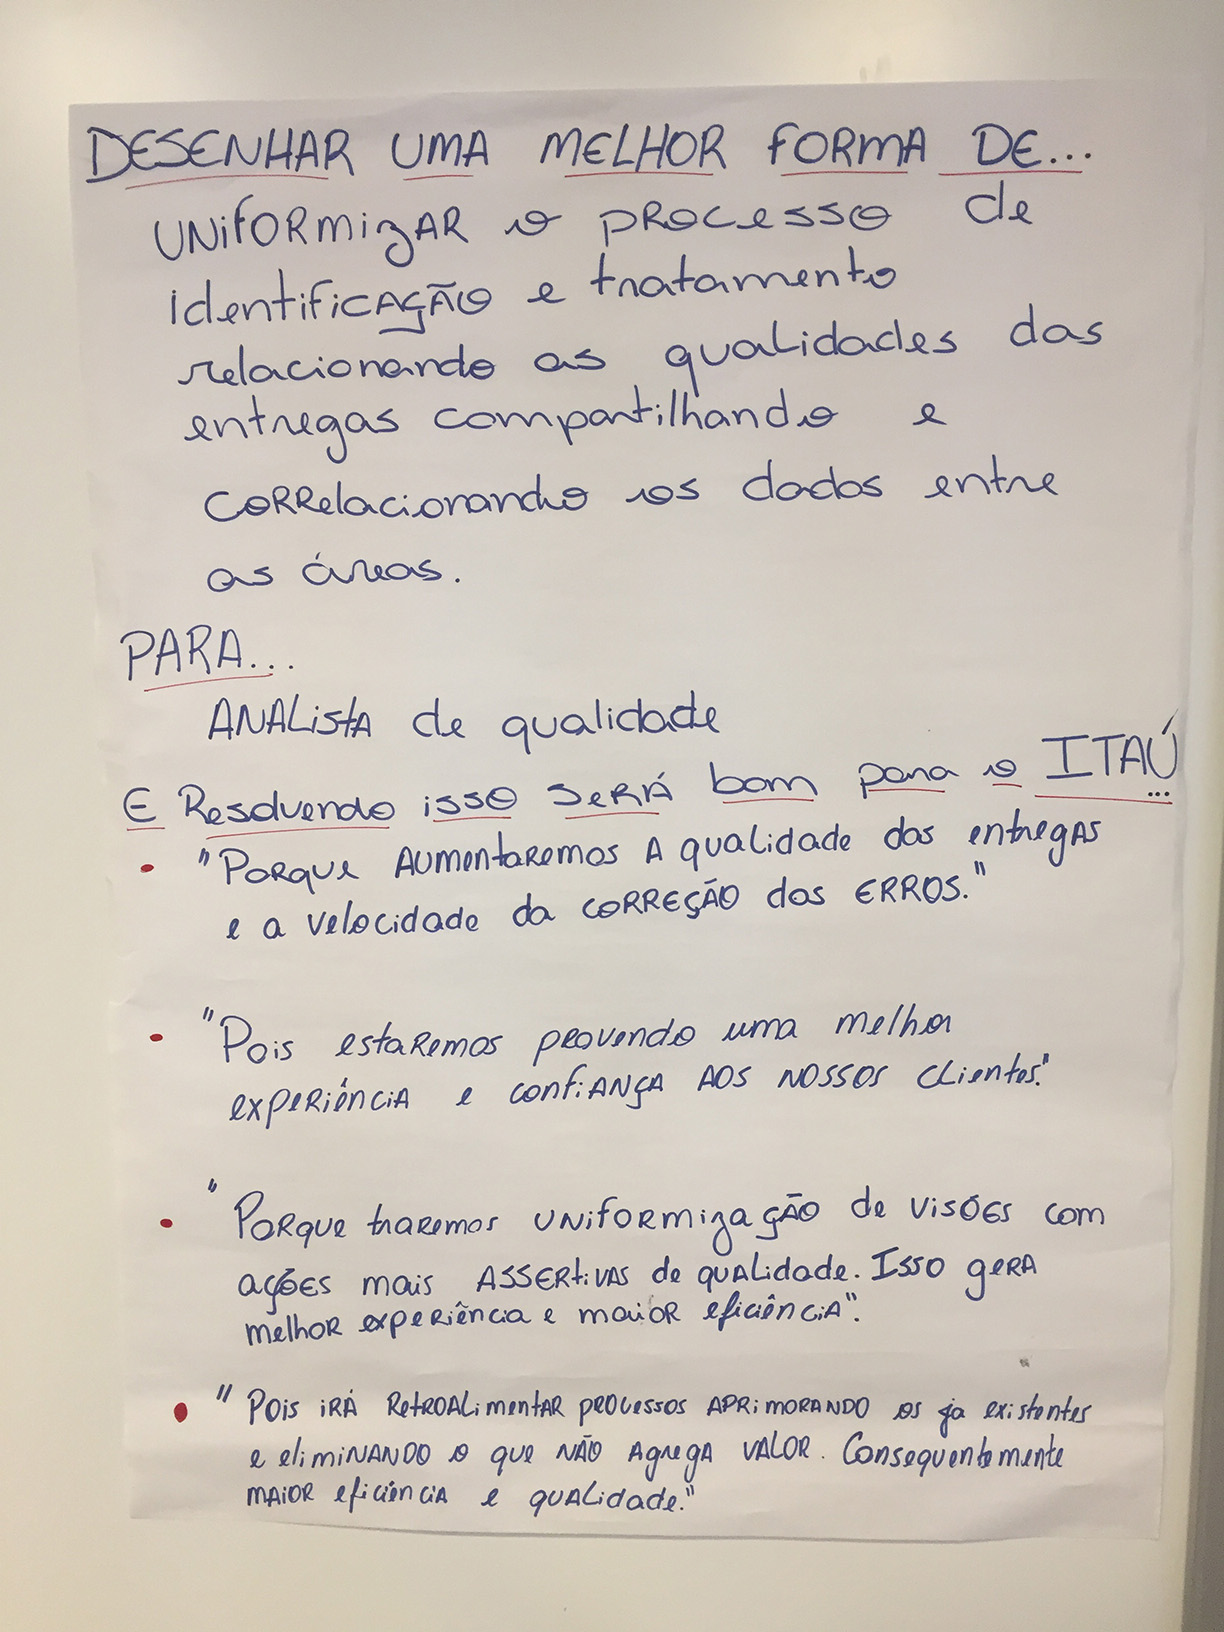 DESENHAR UMA MELHOR FORMA DE...
UNIFORMIZAR o PROCESSO de
identificAÇÃO e tratamento
relacionando as qualidades das
entregas compartilhando e
CORRelacionando os dados entre
as áreas.
PARA...
ANALISTA de qualidade
E Resolvendo isso SERÁ bom para o ITAÚ
...
• "PORQUE AUMENTAREMOS A qualidade das entregAS
e a velocidade da CORREÇÃO dos ERROS."
• "Pois estaREMOS provendo uma melhor
experiência e confiANÇA AOS NOSSOS clientes."
• "PORQUE traremos UNIFORMIZAÇÃO de visões com
AÇÕES mais ASSERTIVAS de qualidade. Isso gERA
melhor experiência e maior eficiência".
• "Pois iRÁ RETROALIMENTAR processos APRIMORANDO os ja existentes
e eliminando o que NÃO AgregA VALOR. Consequentemente
MAIOR eficiência e QUALIDADE."